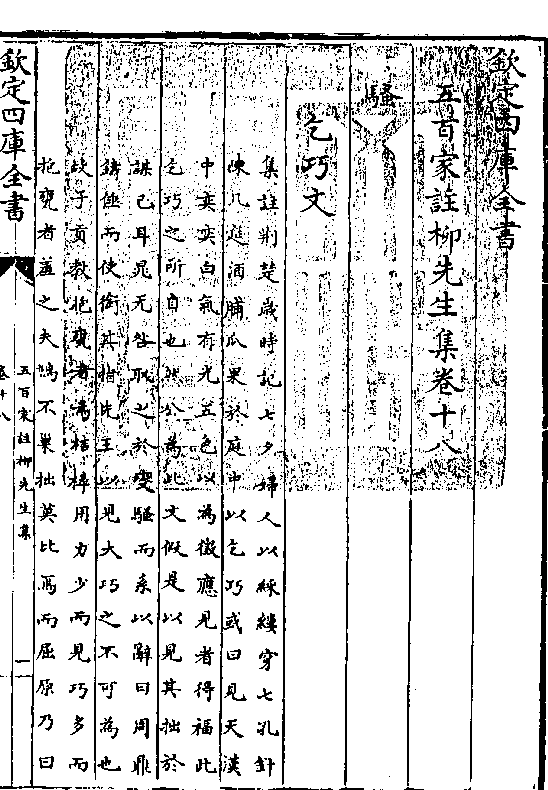 欽定四庫全書
五百家註柳先生集卷十八
騷
乞巧文
集註荆楚歲時記七夕婦人以綵縷穿七孔針
陳几筵酒脯瓜果於庭中以乞巧或曰見天漢
中奕奕白氣有光五色以為徵應見者得福此
乞巧之所自也然公為此文假是以見其拙於
謀己耳晁无咎取之於變騷而系以辭曰周鼎
鑄倕而使銜其指先王以見大巧之不可為也
故子貢教抱甕者為桔槔用力少而見巧多而
抱甕者羞之夫鳩不巢拙莫比焉而屈原乃曰
欽定四庫全書
五百家註柳先生集
卷十八
一